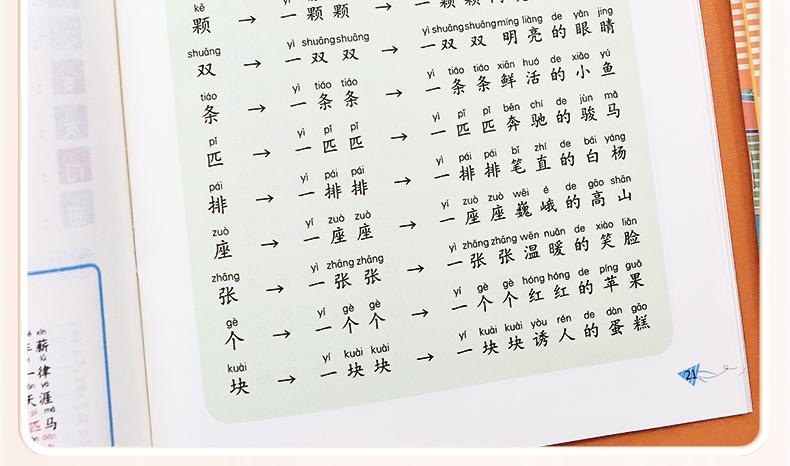 kē
颗 → 一颗颗 → 一颗颗
shuāng yì shuāng shuāng yì shuāng shuāng míng liàng de yǎn jing
双 → 一双双 → 一双双明亮的眼睛
tiáo yì tiáo tiáo yì tiáo tiáo xiān huó de xiǎo yú
条 → 一条条 → 一条条鲜活的小鱼
pǐ yì pǐ pǐ yì pǐ pǐ bēn chí de jùn mǎ
匹 → 一匹匹 → 一匹匹奔驰的骏马
pái yì pái pái yì pái pái bǐ zhí de bái yáng
排 → 一排排 → 一排排笔直的白杨
zuò yí zuò zuò yí zuò zuò wēi é de gāo shān
座 → 一座座 → 一座座巍峨的高山
zhāng yì zhāng zhāng yì zhāng zhāng wēn nuǎn de xiào liǎn
张 → 一张张 → 一张张温暖的笑脸
gè yí gè gè yí gè gè hóng hóng de píng guǒ
个 → 一个个 → 一个个红红的苹果
kuài yí kuài kuài yí kuài kuài yòu rén de dàn gāo
块 → 一块块 → 一块块诱人的蛋糕
21
xīn
薪
lǜ
一律
yá
天涯
pǐ mǎ
匹马